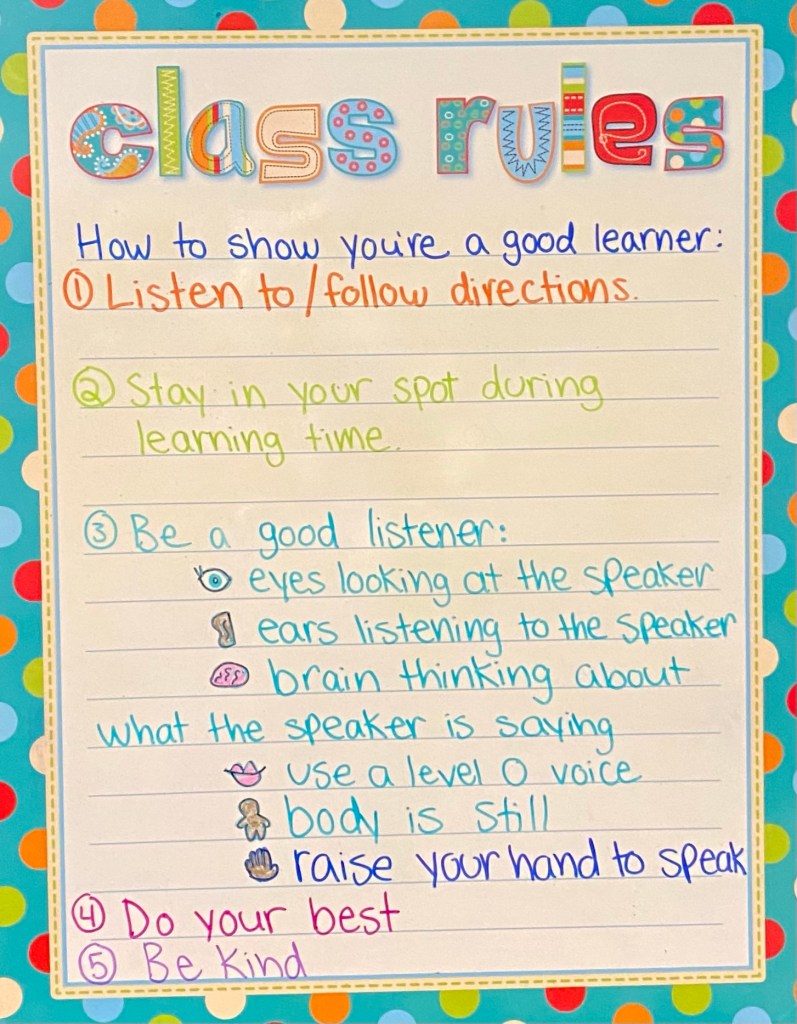 class rules
How to show you're a good learner:
① Listen to/follow directions.
② Stay in your spot during
learning time.
③ Be a good listener:
eyes looking at the speaker
ears listening to the speaker
brain thinking about
what the speaker is saying
use a level 0 voice
body is still
raise your hand to speak
④ Do your best
⑤ Be Kind